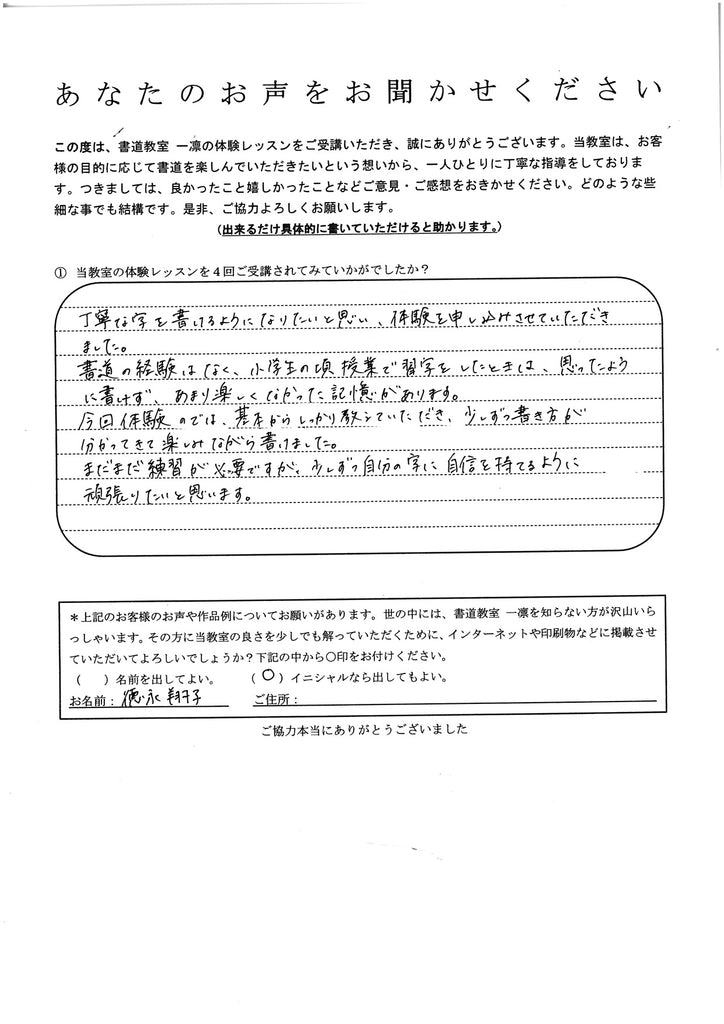 あなたのお声をお聞かせください
この度は、書道教室 一凛の体験レッスンをご受講いただき、誠にありがとうございます。当教室は、お客
様の目的に応じて書道を楽しんでいただきたいという想いから、一人ひとりに丁寧な指導をしておりま
す。つきましては、良かったこと嬉しかったことなどご意見・ご感想をおきかせください。どのような些
細な事でも結構です。是非、ご協力よろしくお願いします。
（出来るだけ具体的に書いていただけると助かります。）
① 当教室の体験レッスンを４回ご受講されてみていかがでしたか？
丁寧な字を書けるようになりたいと思い、体験を申し込みさせていただき
ました。
書道の経験はなく、小学生の頃授業で習字をしたときは、思ったよう
に書けず、あまり楽しくなかった記憶があります。
今回体験のでは、基本からしっかり教えていただき、少しずつ書き方が
分かってきて楽しみながら書けました。
まだまだ練習が必要ですが、少しずつ自分の字に自信を持てるように
頑張りたいと思います。
＊上記のお客様のお声や作品例についてお願いがあります。世の中には、書道教室 一凛を知らない方が沢山いら
っしゃいます。その方に当教室の良さを少しでも解っていただくために、インターネットや印刷物などに掲載させ
ていただいてよろしいでしょうか？下記の中から〇印をお付けください。
（　）名前を出してよい。　（〇）イニシャルなら出してもよい。
お名前：徳永 翔子　ご住所：
ご協力本当にありがとうございました